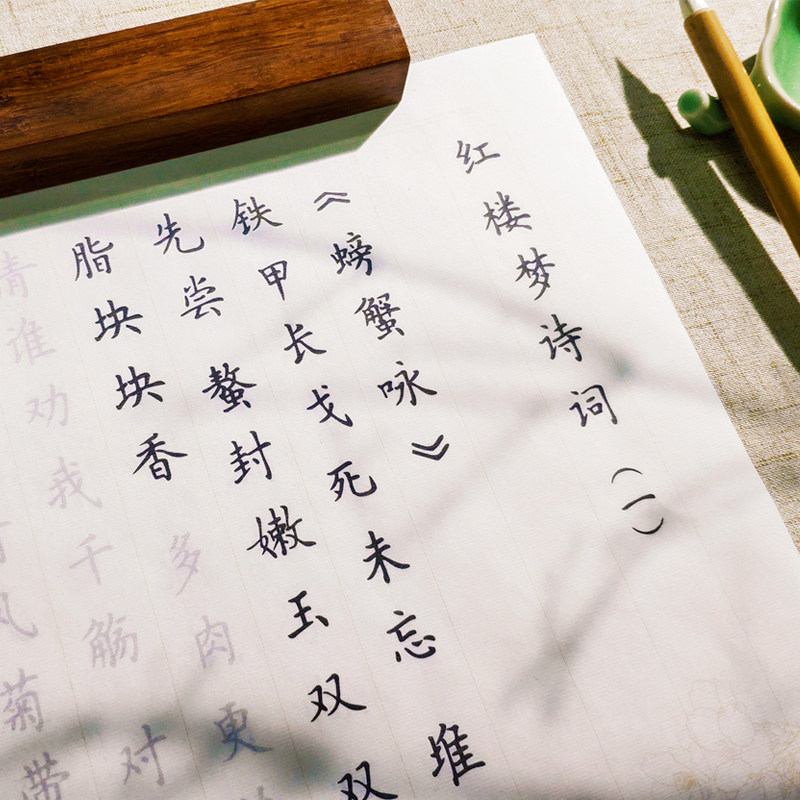 红楼梦诗词（一）
《螃蟹咏》
铁甲长戈死未忘 堆
先尝 螯封嫩玉双双
脂块块香 多肉更
谁劝我千觞 对
风菊带